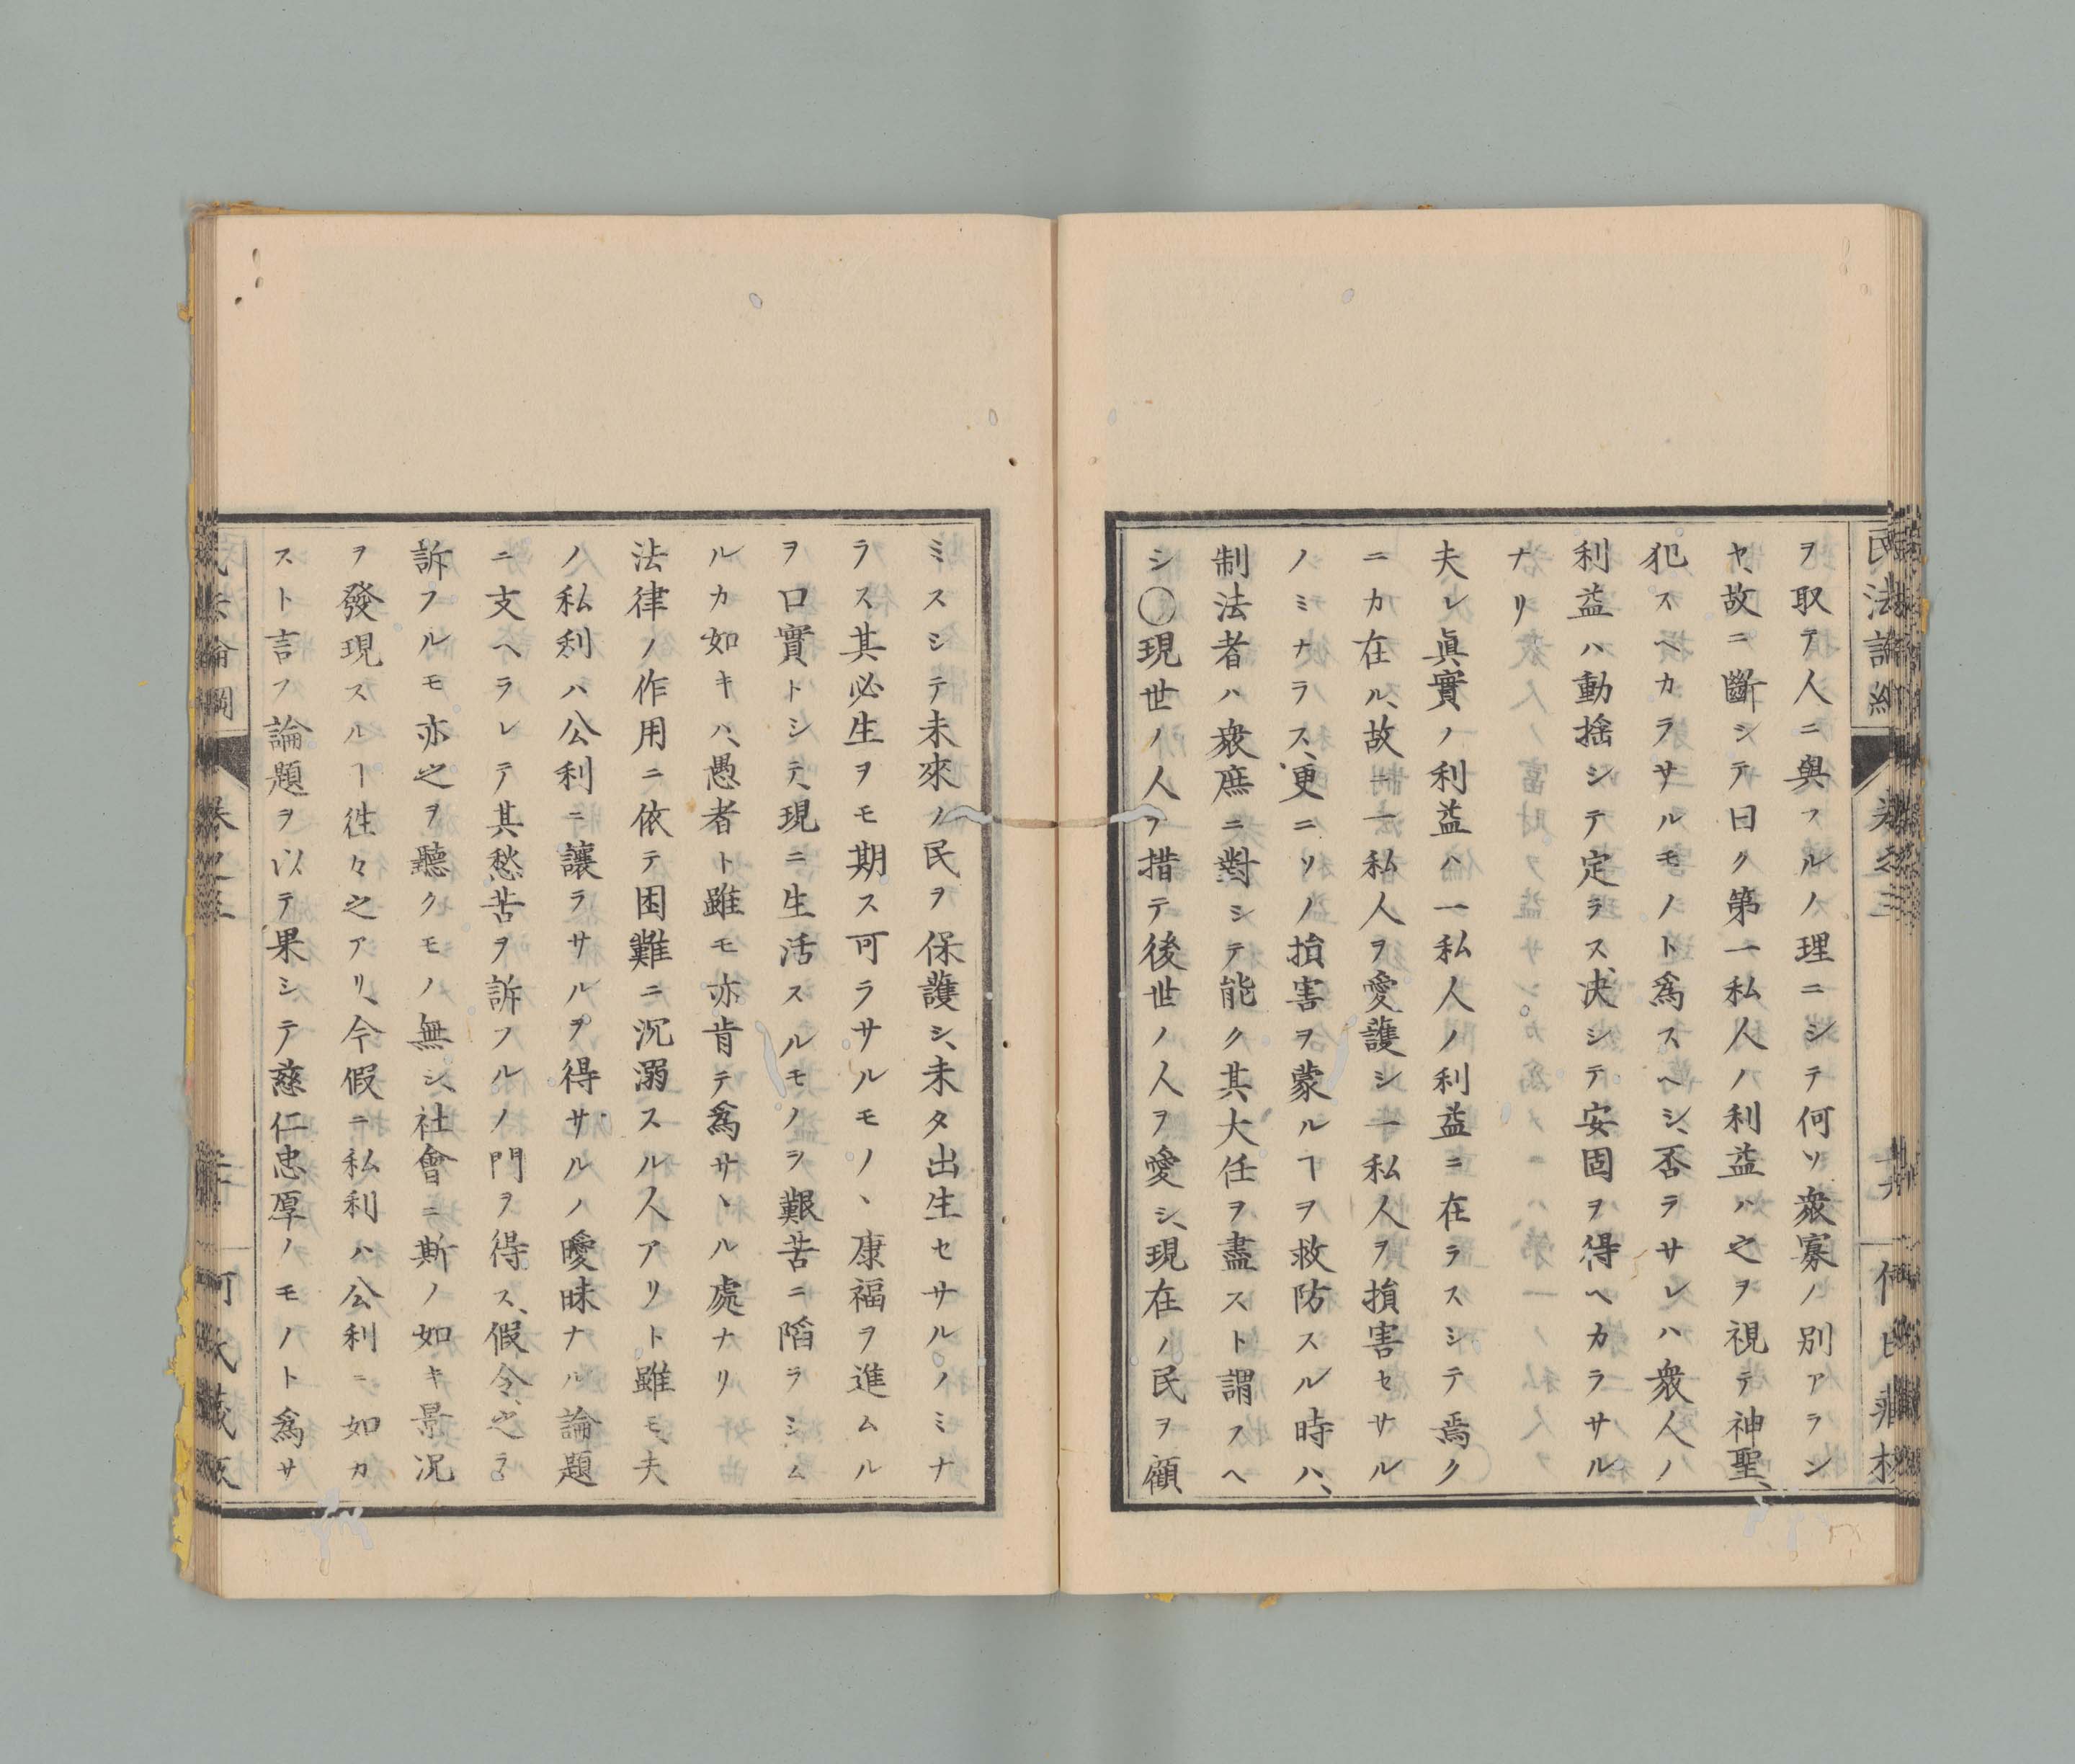 ヲ取テ人ニ與フルノ理ニシテ何ソ衆寡ノ別アラン
ヤ、故ニ斷シテ曰ク第一私人ノ利益ハ之ヲ視テ神聖、
犯スヘカラサルモノト爲スヘシ、否ラサレハ衆人ノ
利益ハ動搖シテ定ラス、决シテ安固ヲ得ヘカラサル
ナリ
夫レ眞實ノ利益ハ一私人ノ利益ニ在ラスシテ焉ク
ニカ在ル、故ニ一私人ヲ愛護シ一私人ヲ損害セサル
ノミナラス、更ニソノ損害ヲ蒙ルヿヲ救防スル時ハ、
制法者ハ衆庶ニ對シテ能ク其大任ヲ盡スト謂フヘ
シ◯現世ノ人ヲ措テ後世ノ人ヲ愛シ、現在ノ民ヲ顧
ミスシテ未來ノ民ヲ保護シ、未タ出生セサルノミナ
ラス、其必生ヲモ期ス可ラサルモノヽ康福ヲ進ムル
ヲ口實トシテ、現ニ生活スルモノヲ艱苦ニ陷ラシム
ルカ如キハ、愚者ト雖モ亦肯テ爲サヽル處ナリ
法律ノ作用ニ依テ困難ニ沉溺スル人アリト雖モ、夫
ノ私利ハ公利ニ讓ラサルヲ得サルノ曖昧ナル論題
ニ支ヘラレテ其愁苦ヲ訴フルノ門ヲ得ス、假令之ヲ
訴フルモ亦之ヲ聽クモノ無シ、社會ニ斯ノ如キ景况
ヲ發現スルヿ徃々之アリ、今假ニ私利ハ公利ニ如カ
スト言フ論題ヲ以テ果シテ慈仁忠厚ノモノト爲サ